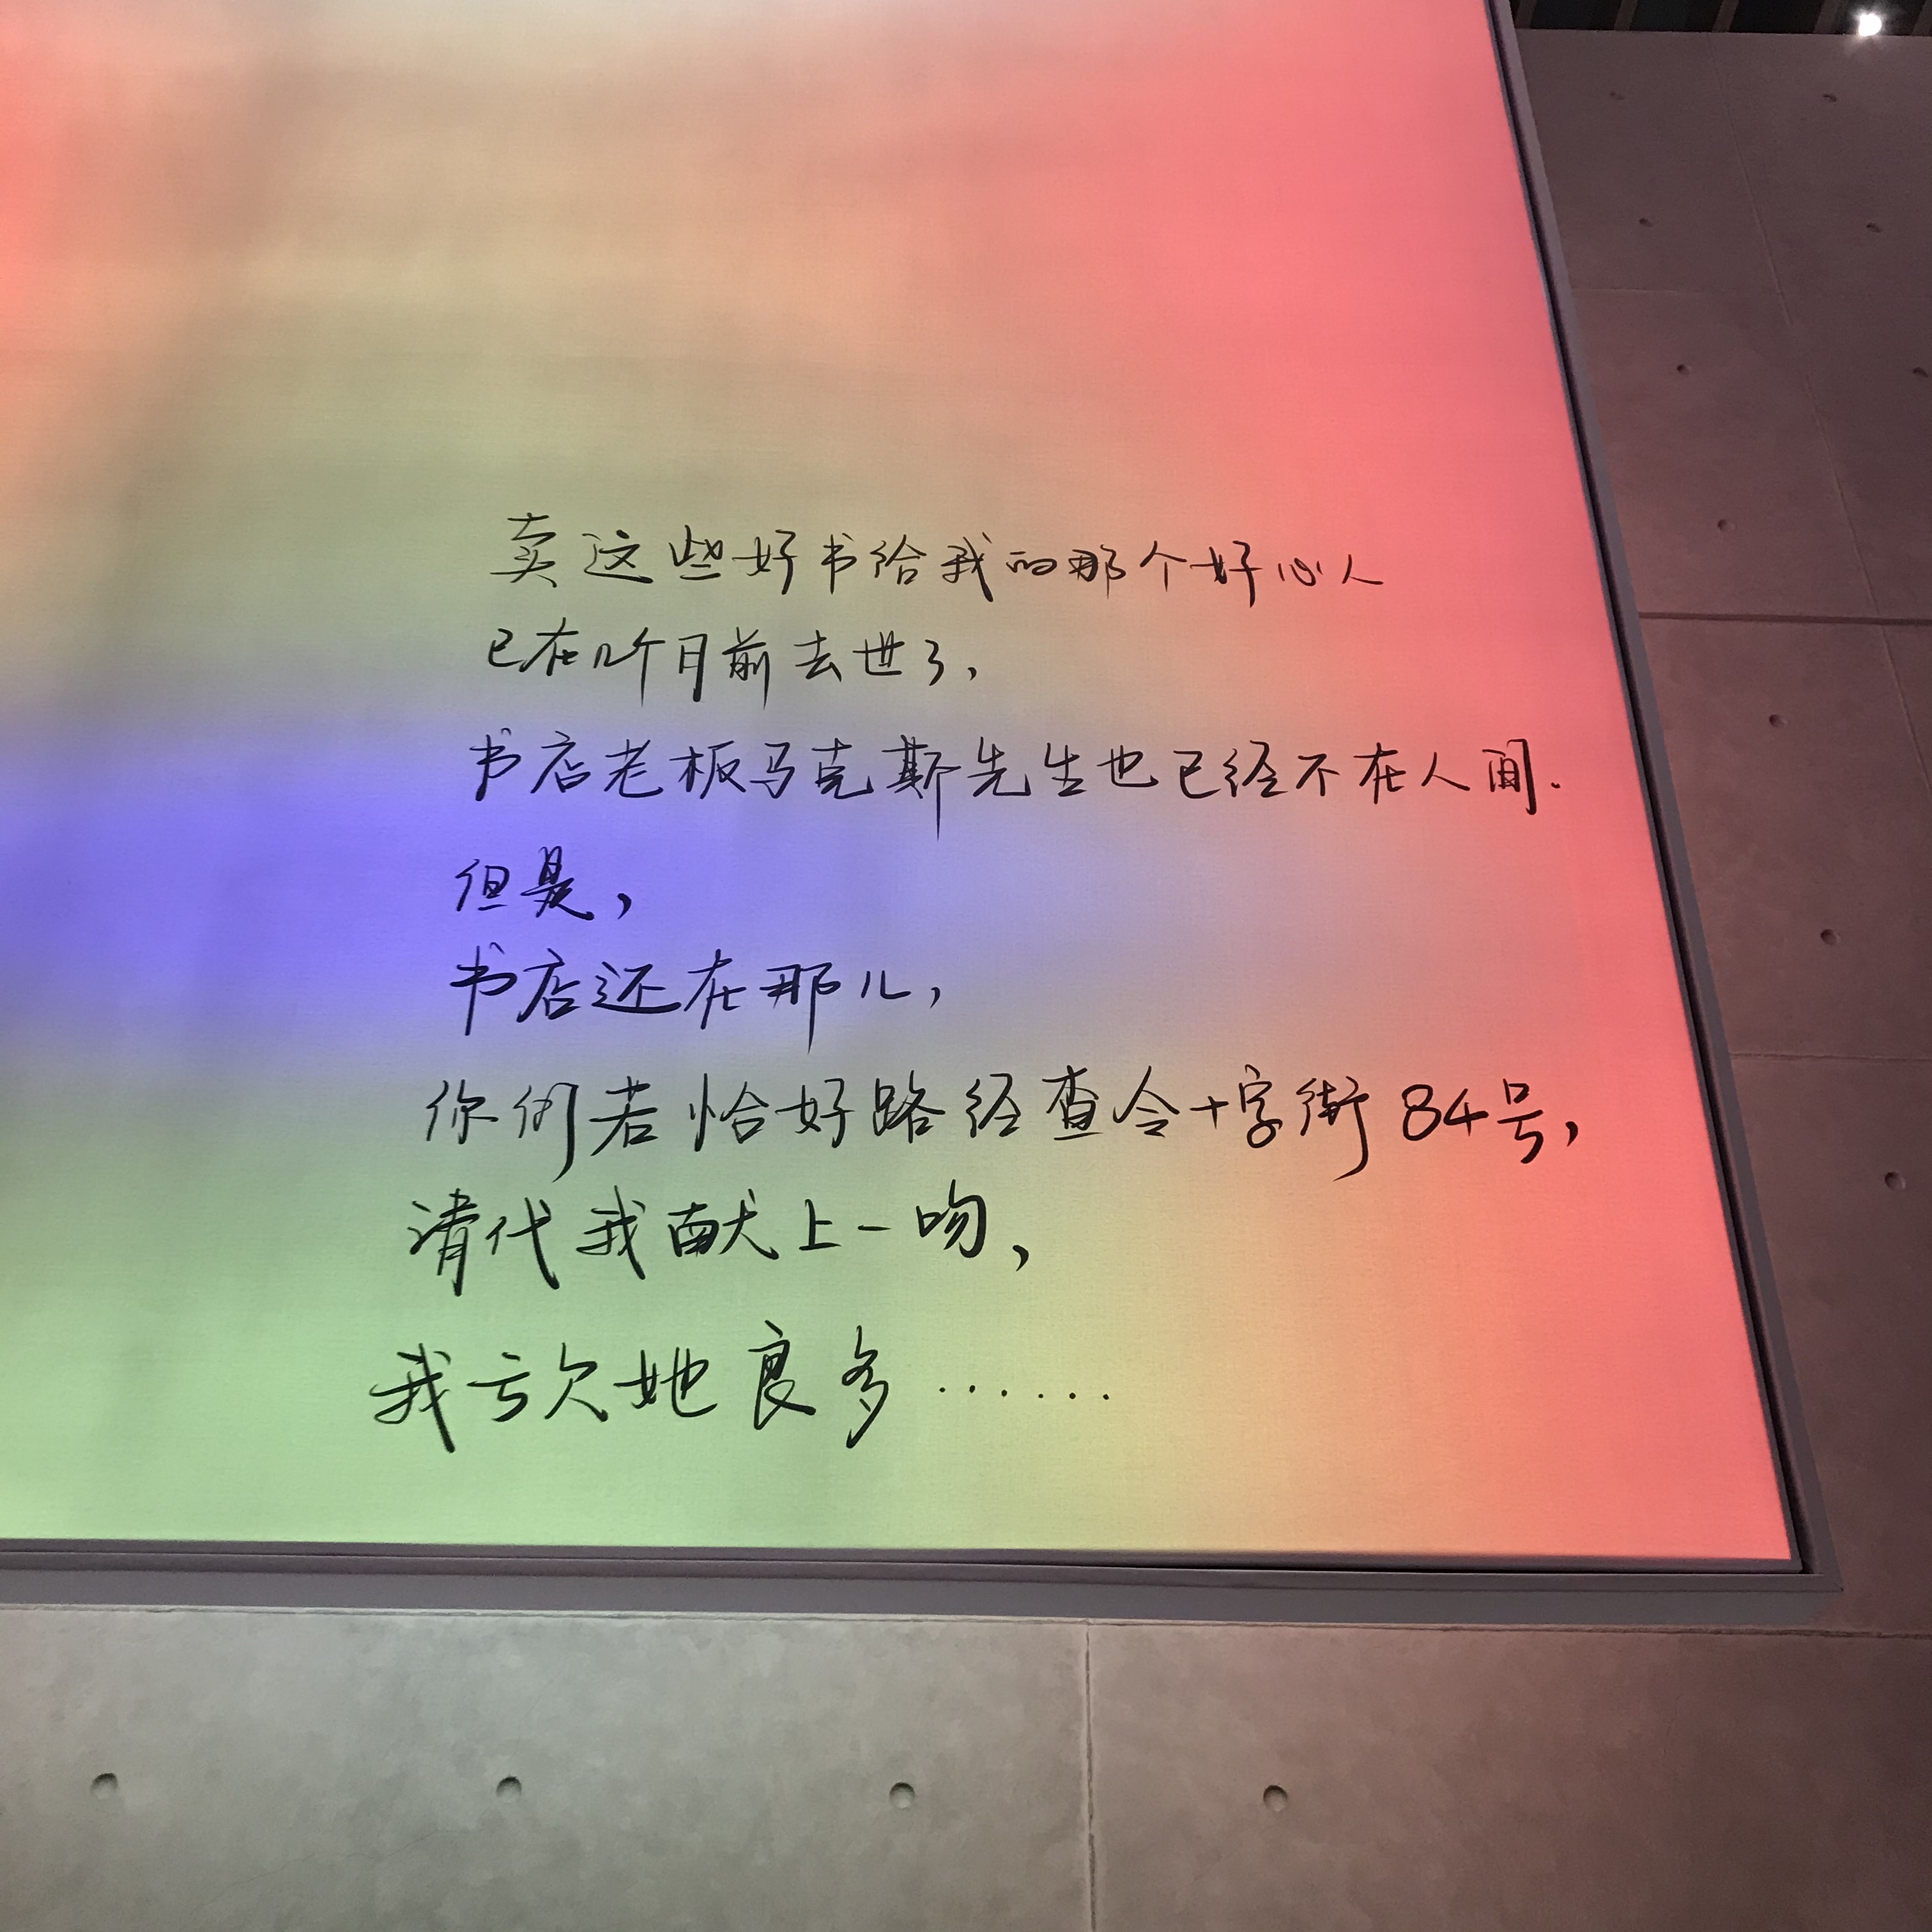 卖这些好书给我的那个好心人
已在几个月前去世了,
书店老板马克斯先生也已经不在人间.
但是,
书店还在那儿,
你们若恰好路经查令十字街84号,
请代我献上一吻,
我亏欠她良多······